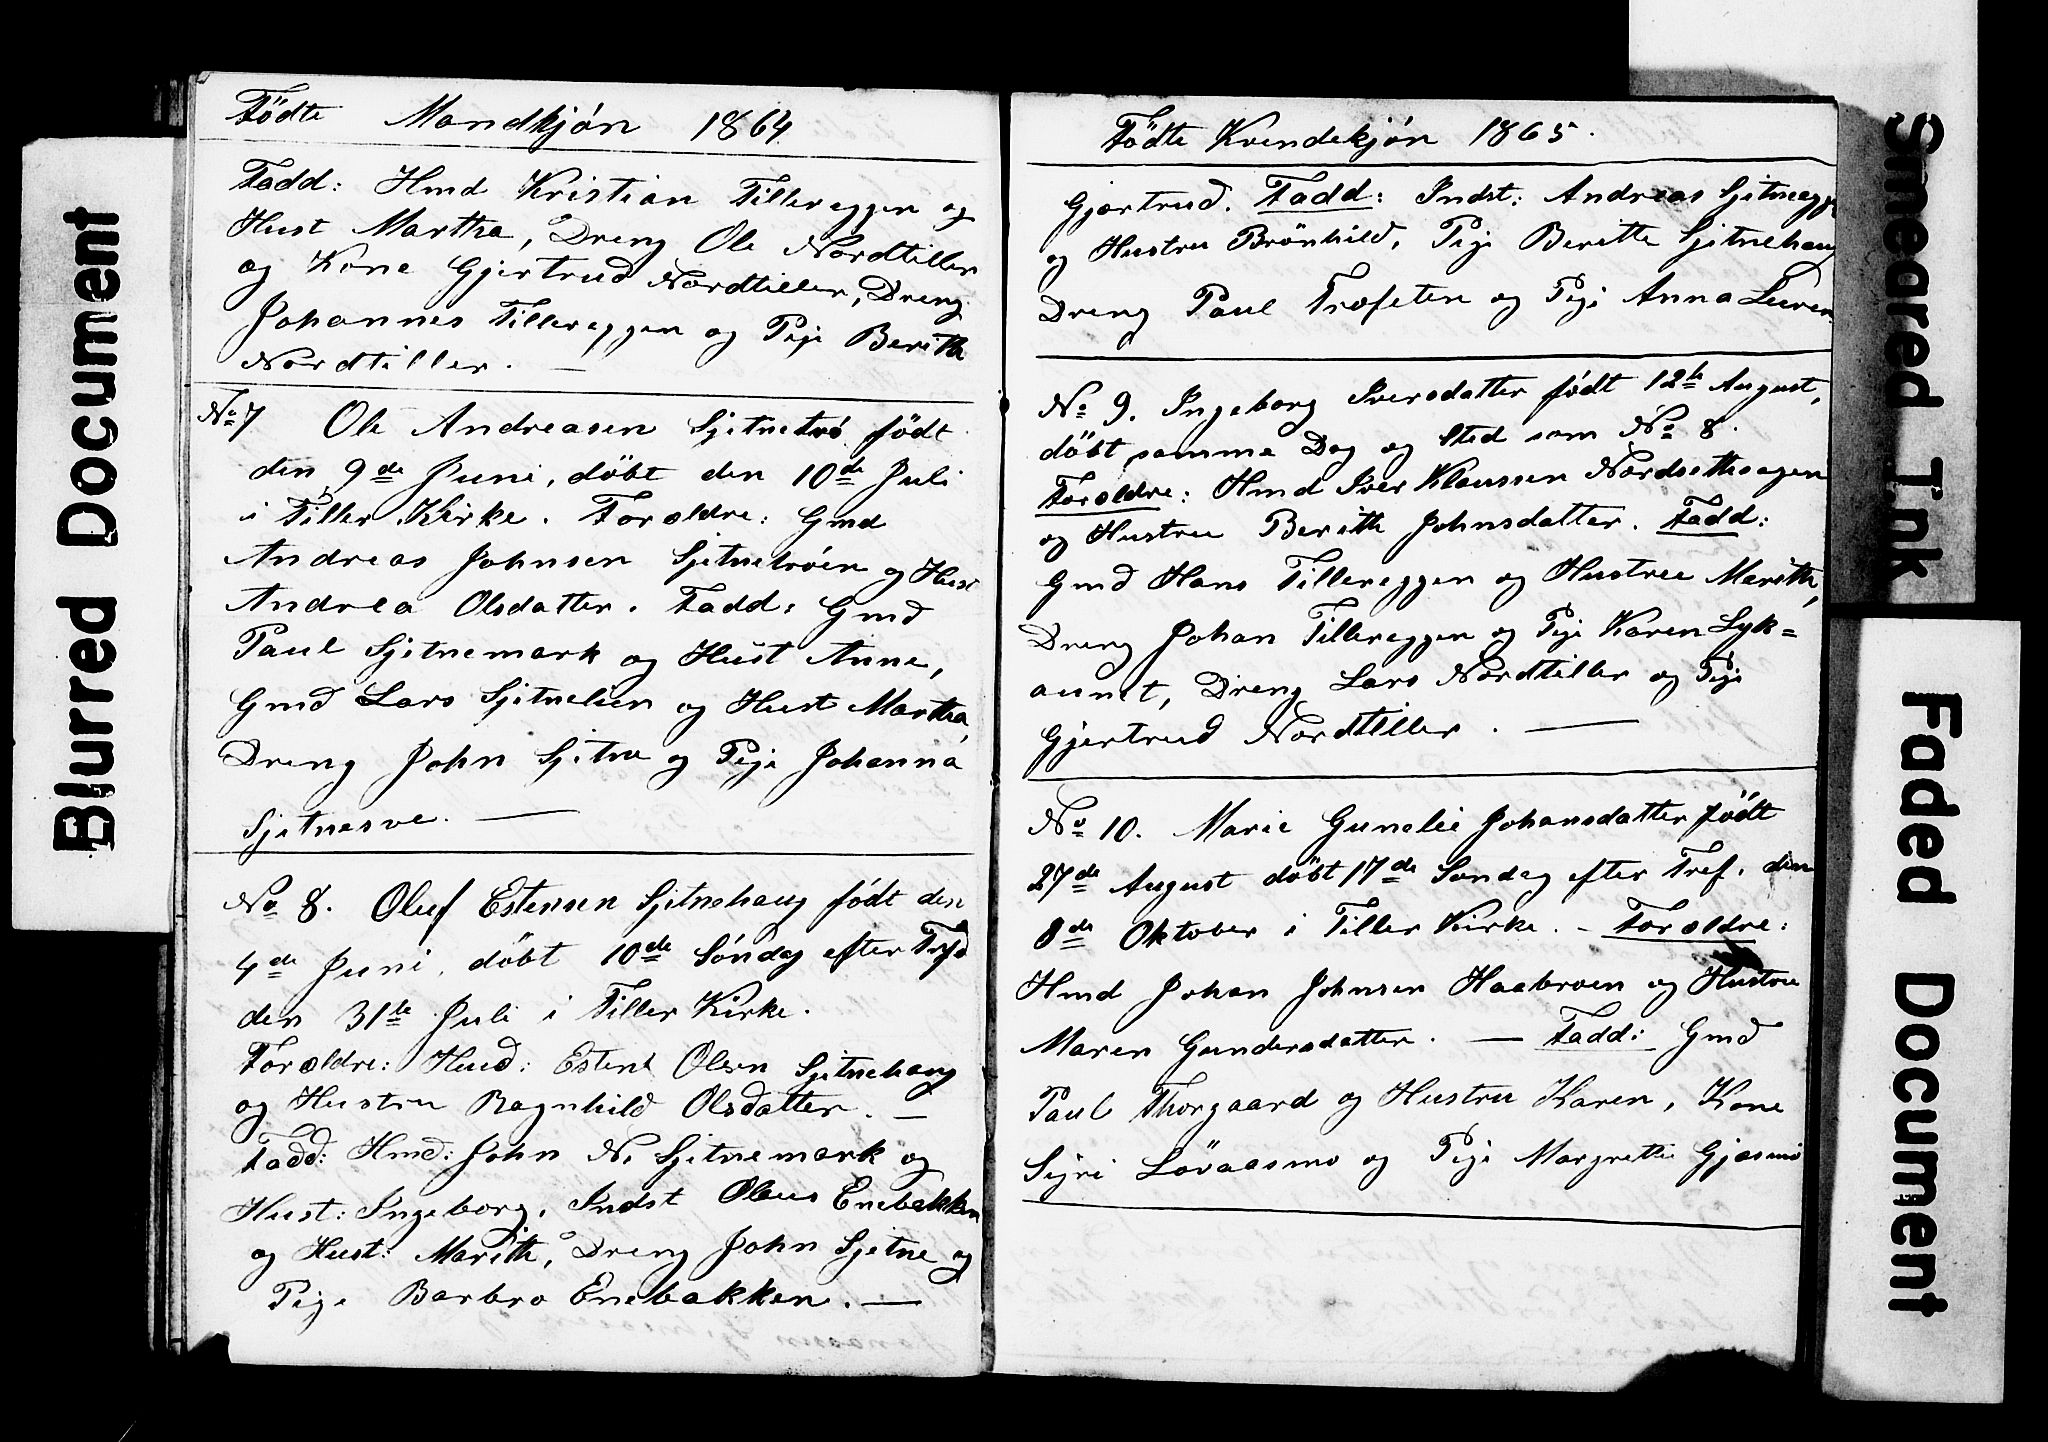 Födte Mandkjón 1864
Fadd: Hmd Kristian Tillereggen og
Hust Martha, Dreng Ole Nordtiller
og Kone Gjertrud Nordtiller, Dreng
Johannes Tillereggen og Pige Berith
Nordtiller. —
No 7 Ole Andreasen Sjetnetrö födt
den 9de Juni, döbt den 10de Juli
i Tiller Kirke. Forældre: Gmd
Andreas Johnsen Sjetnetróen og Hust
Andrea Olsdatter. Fadd: Gmd
Paul Sjetnemark og Hust Anne,
Gmd Lars Sjetnelien og Hust Martha,
Dreng John Sjetne og Pige Johanna
Sjetnesve. —
No 8. Oluf Estensen Sjetnehaug födt den
4de Juni, döbt 10de Söndag efter Trfd
den 31te Juli i Tiller Kirke.
Forældre: Husd: Esten Olsen Sjetnehaug
og Hustru Ragnhild Olsdatter. —
Fadd: Hmd: John N. Sjetnemark og
Hust: Ingeborg, Indst Olaus Enebakken
og Hust: Marith, Dreng John Sjetne og
Pige Barbro Enebakken. —
Födte Kvindekjón 1865.
Gjertrud. Fadd: Indst: Andreas Sjetneegge
og Hustru Brönhild, Pige Beritte Sjetnehaug
Dreng Paul Trøfeten og Pige Anna Leeren
No 9. Ingeborg Iversdatter födt 12te August,
döbt samme Dag og Sted som No 8.
Forældre: Hmd Iver Klaussen Nordsethaagen
og Hustru Berith Johnsdatter. Fadd:
Gmd Hans Tillereggen og Hustru Marith,
Dreng Johan Tillereggen og Pige Karen Lyk=
aunet, Dreng Lars Nordtiller og Pige
Gjertrud Nordtiller. —
No 10. Marie Gunelie Johansdatter födt
27de August döbt 17de Søndag efter Tref. den
8de Oktober i Tiller Kirke. – Forældre:
Hmd Johan Johnsen Haabroen og Hustru
Maren Gundersdatter. — Fadd: Gmd
Paul Thorgaard og Hustru Karen, Kone
Sigri Lövaasmo og Pige Margrette Gjøsmo
Blurred Document
Smeared Ink
Faded Document